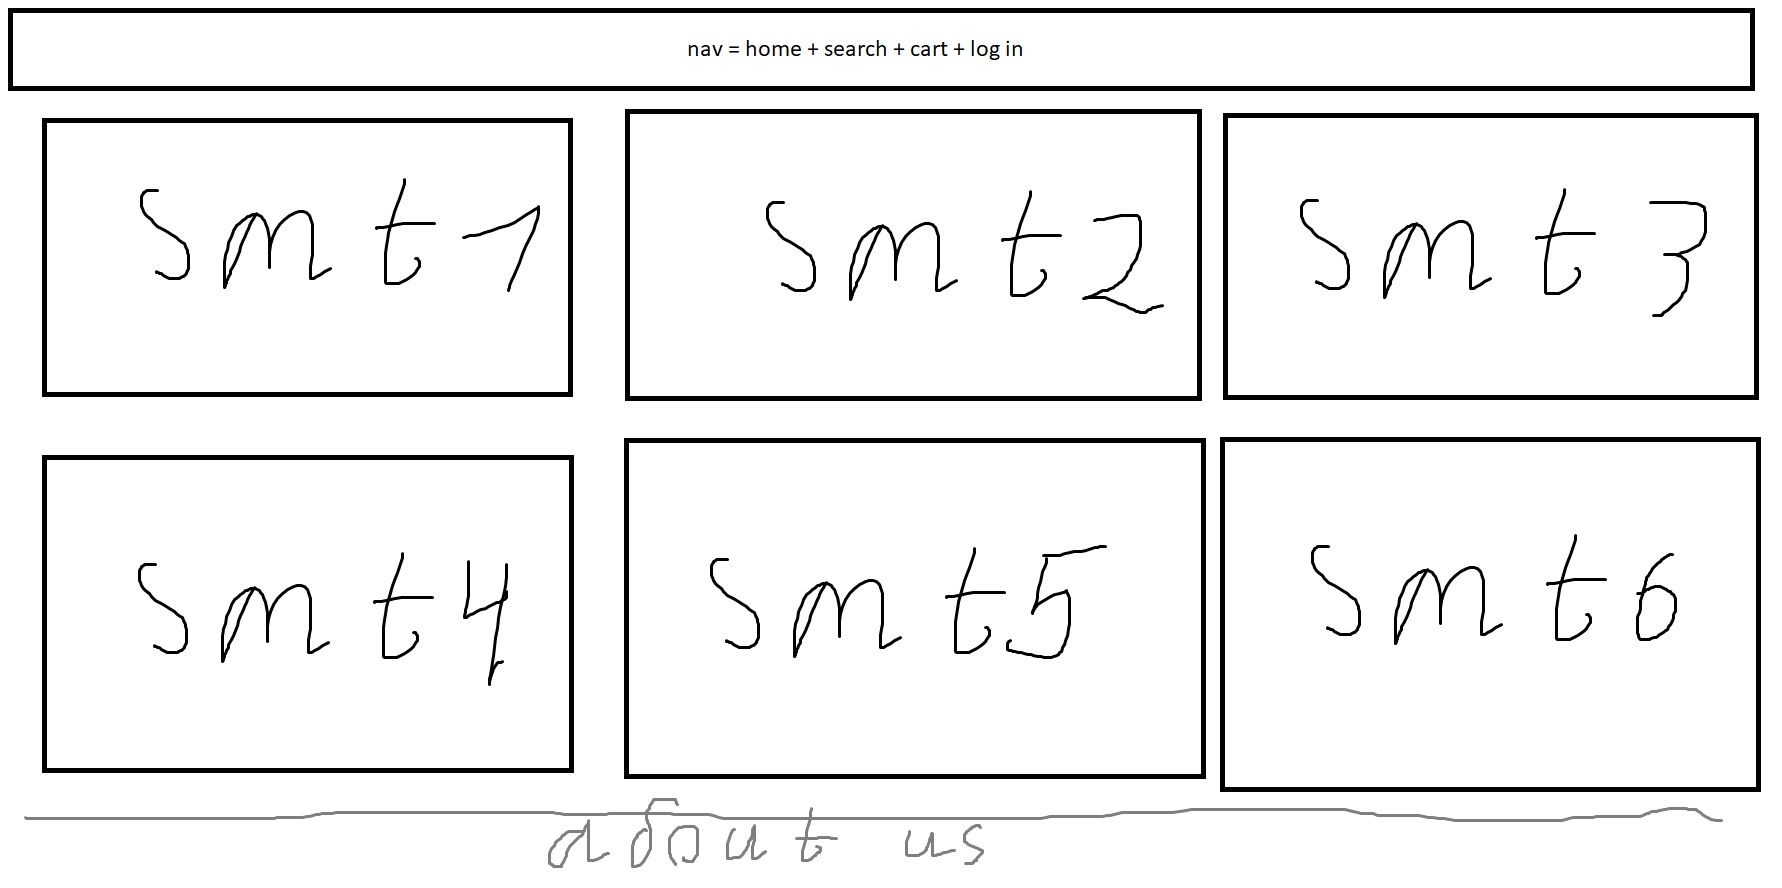 nav = home + search + cart + log in
smt1
smt2
smt3
smt4
smt5
smt6
about us